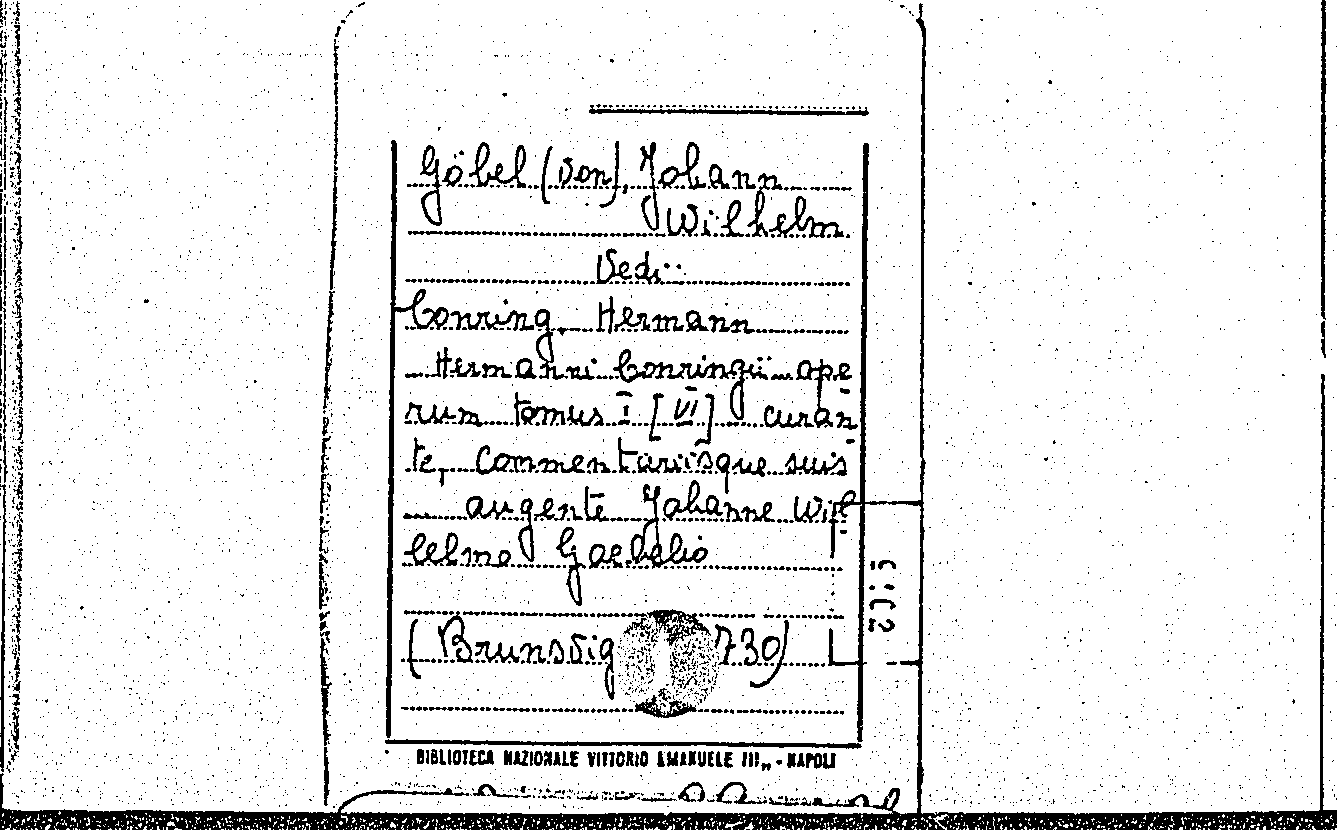 Göbel (von), Johann
Wilhelm
Vedi:
Conring, Hermann
Hermanni Conringii ope-
rum tomus I [VI] curan-
te, commentariisque suis
augente Johanne Wil-
lelmo Goebelio
(Brunsvig 730)
BIBLIOTECA NAZIONALE VITTORIO EMANUELE III„ - NAPOLI